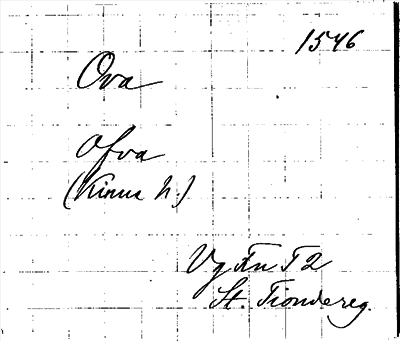 1546
Ova
Ofva
(Kinne h.)
Vg Fn T 2
St. Tiondereg.